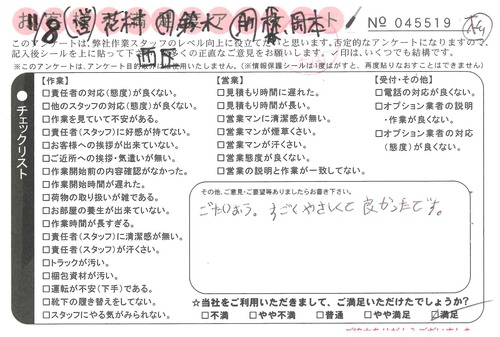 11/8 営 花村 鈴木 助 森、岡本
西下
№ 045519
このアンケートは、弊社作業スタッフのレベル向上に役立てたいと思います。否定的なアンケートになりますので、
※このアンケートは、アンケート目的以外には使用いたしません。(※情報保護シールは1度はがすと、再度貼りなおすことはできません)
チェックリスト
【作業】
□責任者の対応(態度)が良くない。
□他のスタッフの対応(態度)が良くない。
□作業を見ていて不安がある。
□責任者(スタッフ)に好感が持てない。
□お客様への挨拶が出来ていない。
□ご近所への挨拶・気遣いが無い。
□作業開始前の内容確認がなかった。
□作業開始時間が遅れた。
□荷物の取り扱いが雑である。
□お部屋の養生が出来ていない。
□作業時間が長すぎる。
□責任者(スタッフ)に清潔感が無い。
□責任者(スタッフ)が汗くさい。
□トラックが汚い。
□梱包資材が汚い。
□運転が不安(下手)である。
□靴下の履き替えをしてない。
□スタッフにやる気がみられない。
【営業】
□見積もり時間に遅れた。
□見積もり時間が長い。
□営業マンに清潔感が無い。
□営業マンが煙草くさい。
□営業マンが汗くさい。
□営業態度が良くない。
□営業の説明と作業が一致してない。
【受付・その他】
□電話の対応が良くない。
□オプション業者の説明
・作業が良くない。
□オプション業者の対応
(態度)が良くない。
その他、ご意見・ご要望等ありましたらお書き下さい。
すごくやさしくて良かったです。
☆当社をご利用いただきまして、ご満足いただけたでしょうか?
□不満 □やや不満 □普通 □やや満足 ☑満足